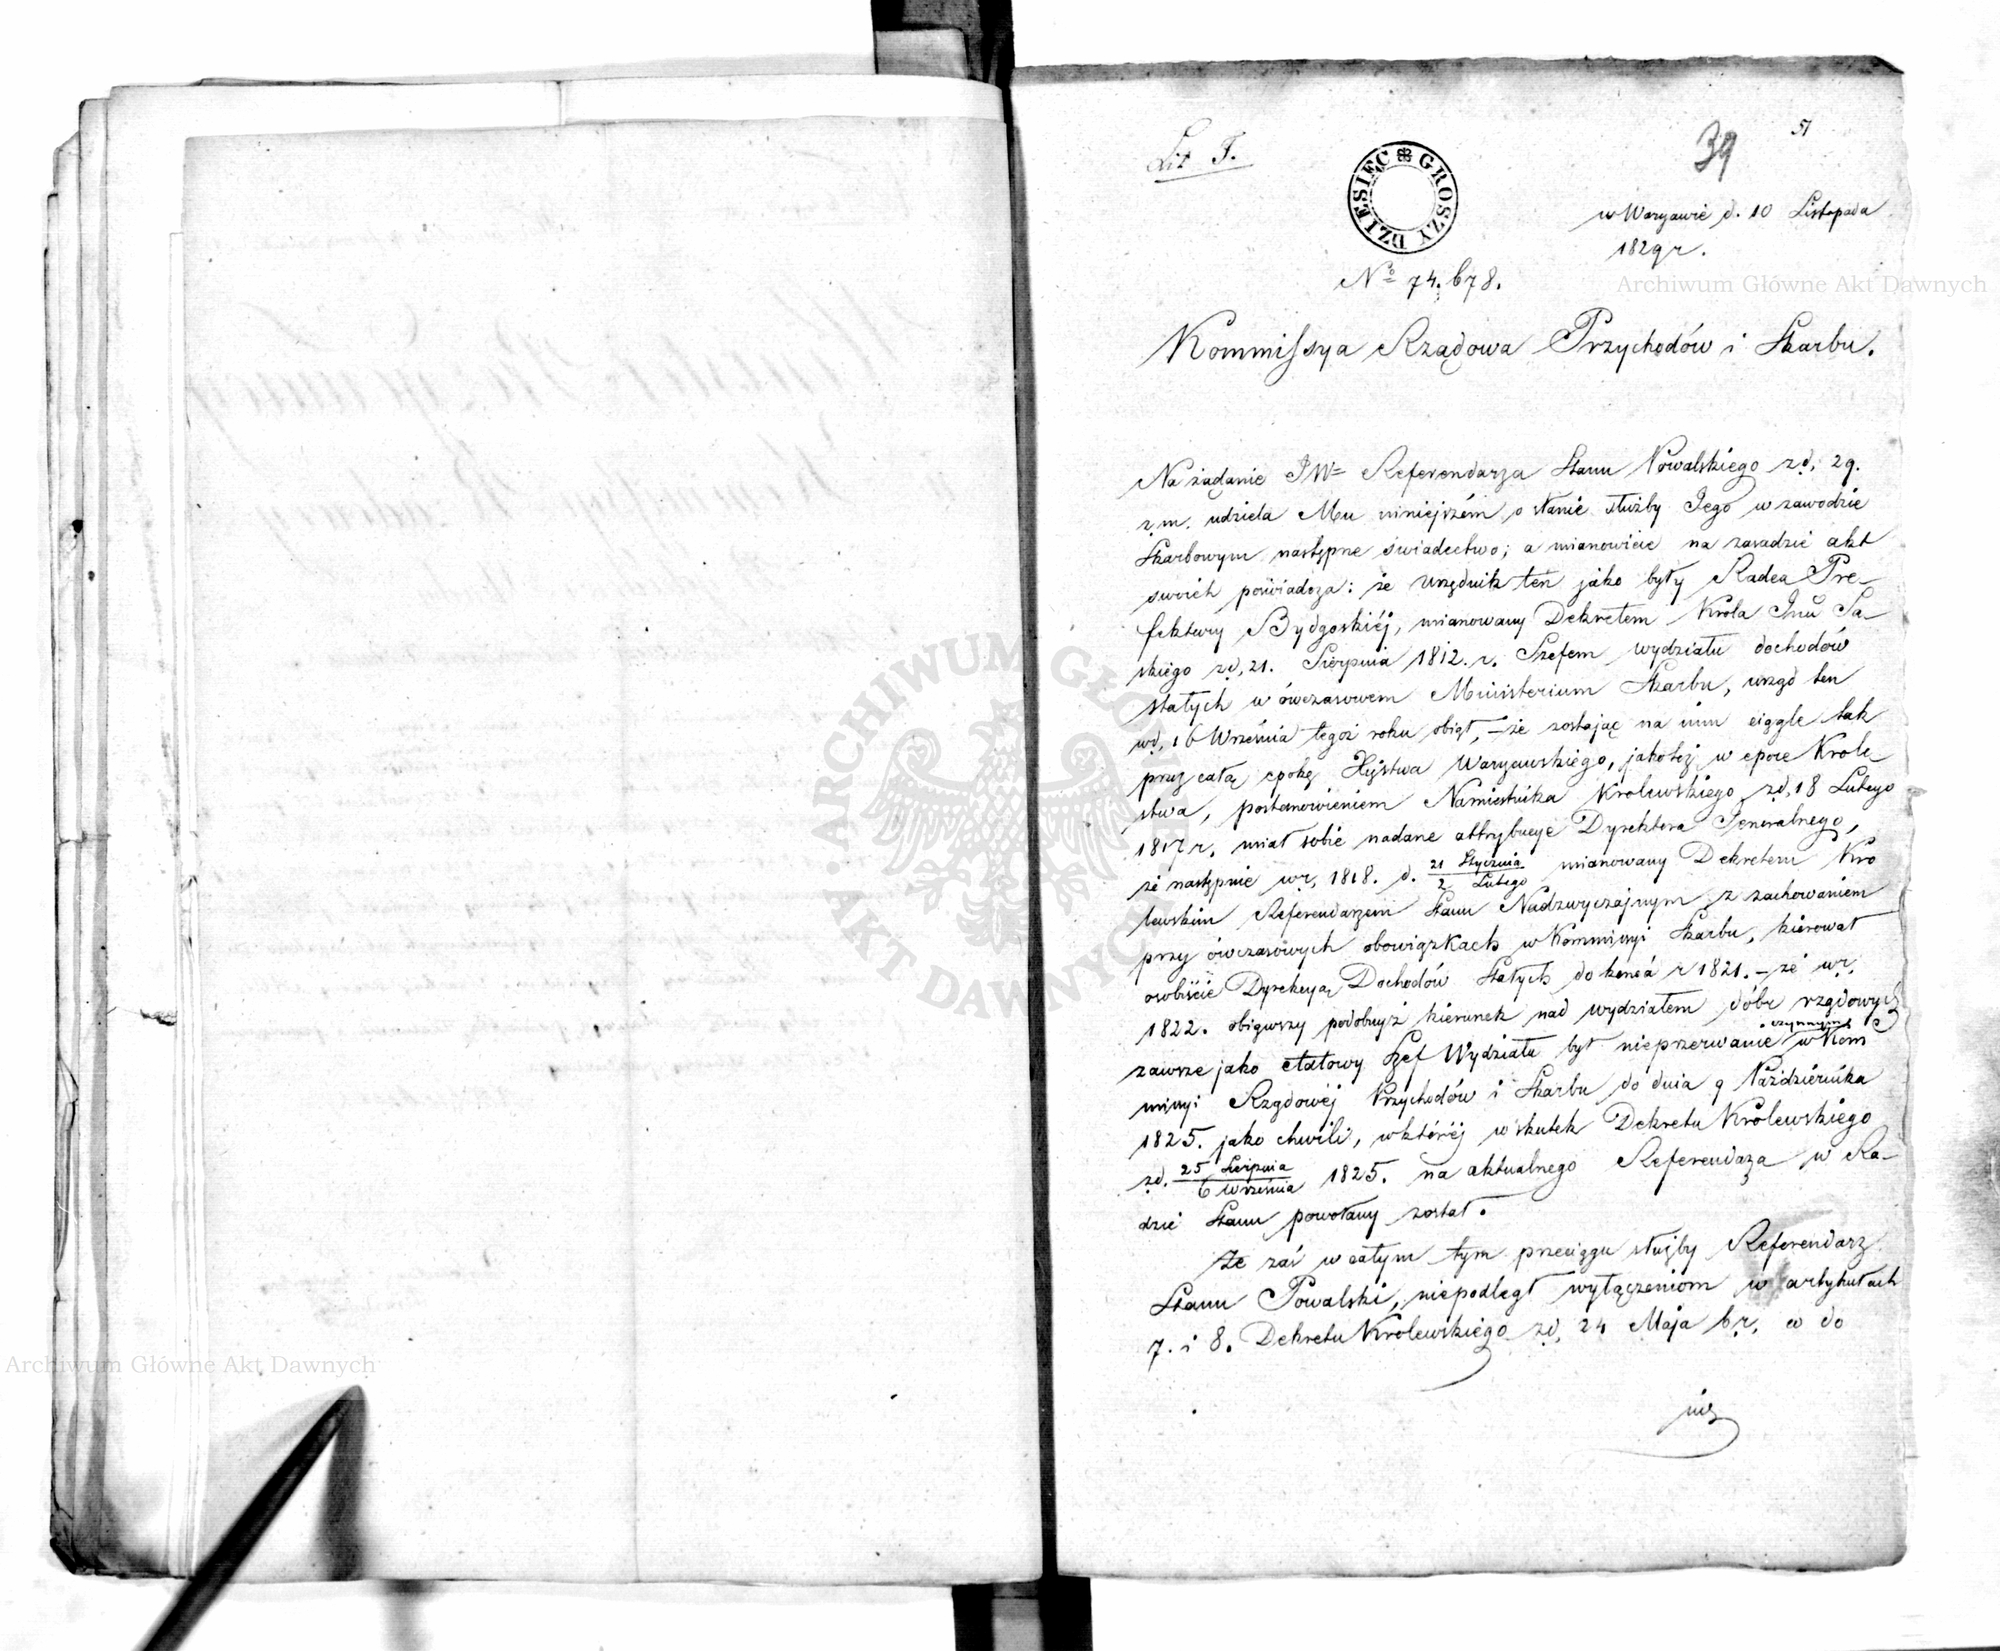 Lit. F.
39
51
DZIESIĘC GROSZY
w Warszawie d. 10 Listopada
1829 r.
Archiwum Główne Akt Dawnych
No 74.678.
Kommissya Rządowa Przychodów i Skarbu.
Na żądanie JW= Referendarza Stanu Powalskiego z d. 29.
z. m. udziela Mu niniejszém o stanie służby Jego w zawodzie
Skarbowym następne świadectwo; a mianowicie na zasadzie akt
swoich poświadcza: że urzędnik ten jako były Radca Pre-
fektury Bydgoskiéj, mianowany Dekretem Króla Jmci Sa-
skiego z d. 21. Sierpnia 1812. r. Szefem wydziału dochodów
stałych w ówczasowem Ministerium Skarbu, urząd ten
w d. 16 Września tegoż roku objął, – że zostając na nim ciągle tak
przez całą epokę Xięstwa Warszawskiego, jakoteż w epoce Króle-
stwa, postanowieniem Namiestnika Królewskiego z d. 18 Lutego
1817 r. miał sobie nadane attrybucye Dyrektora Jeneralnego,
że następnie w r. 1818. d. 21 Stycznia / 2 Lutego mianowany Dekretem Kró
lewskim Referendarzem Stanu Nadzwyczajnym z zachowaniem
przy ówczasowych obowiązkach w Kommissyi Skarbu, kierował
osobiście Dyrekcyą Dochodów Stałych do końca r 1821. – że w r.
1822. objąwszy podobnyż kierunek nad wydziałem dóbr rządowych
zawsze jako etatowy Szef Wydziału był nieprzerwanie czynnym w Kom
missyi Rządowéj Przychodów i Skarbu do dnia 9 Października
1825. jako chwili, w któréj w skutek Dekretu Królewskiego
z d. 25 Sierpnia / 6 Września 1825. na aktualnego Referendarza w Ra-
dzie Stanu powołany został.
Że zaś w całym tym przeciągu służby Referendarz
Stanu Powalski, niepodległ wyłączeniom w artykułach
7. i 8. Dekretu Królewskiego z d. 24 Maja b. r. co do
niéj
ARCHIWUM GŁÓWNE AKT DAWNYCH
Archiwum Główne Akt Dawnych